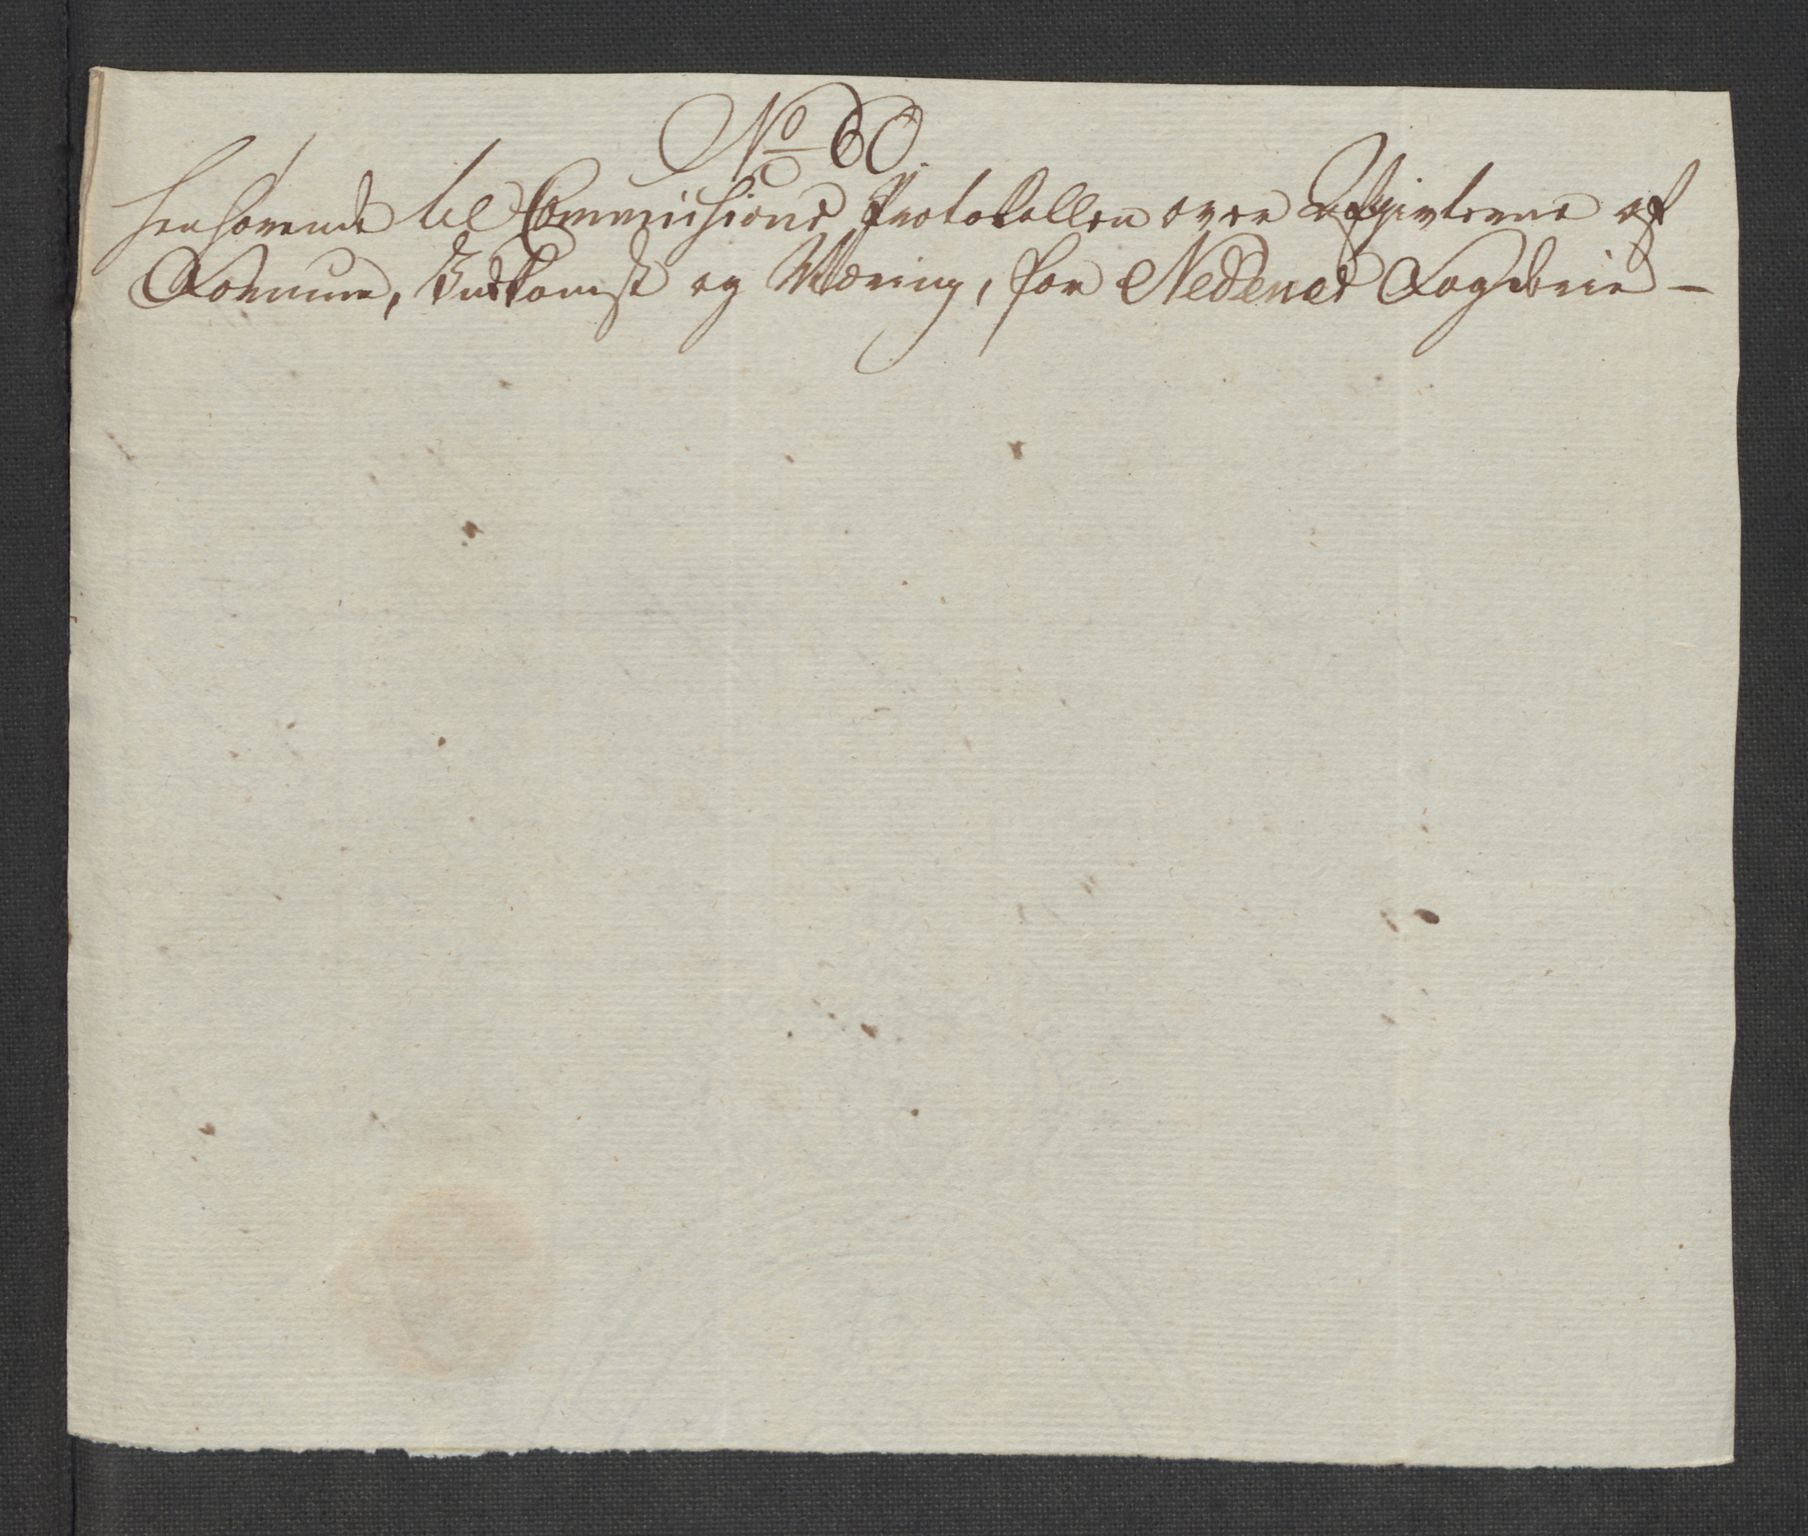 No 60.
henhørende til Commissions Protokollen over Afgivterne af
Formue, Indkomst og Næring, for Nedenes Fogderie -